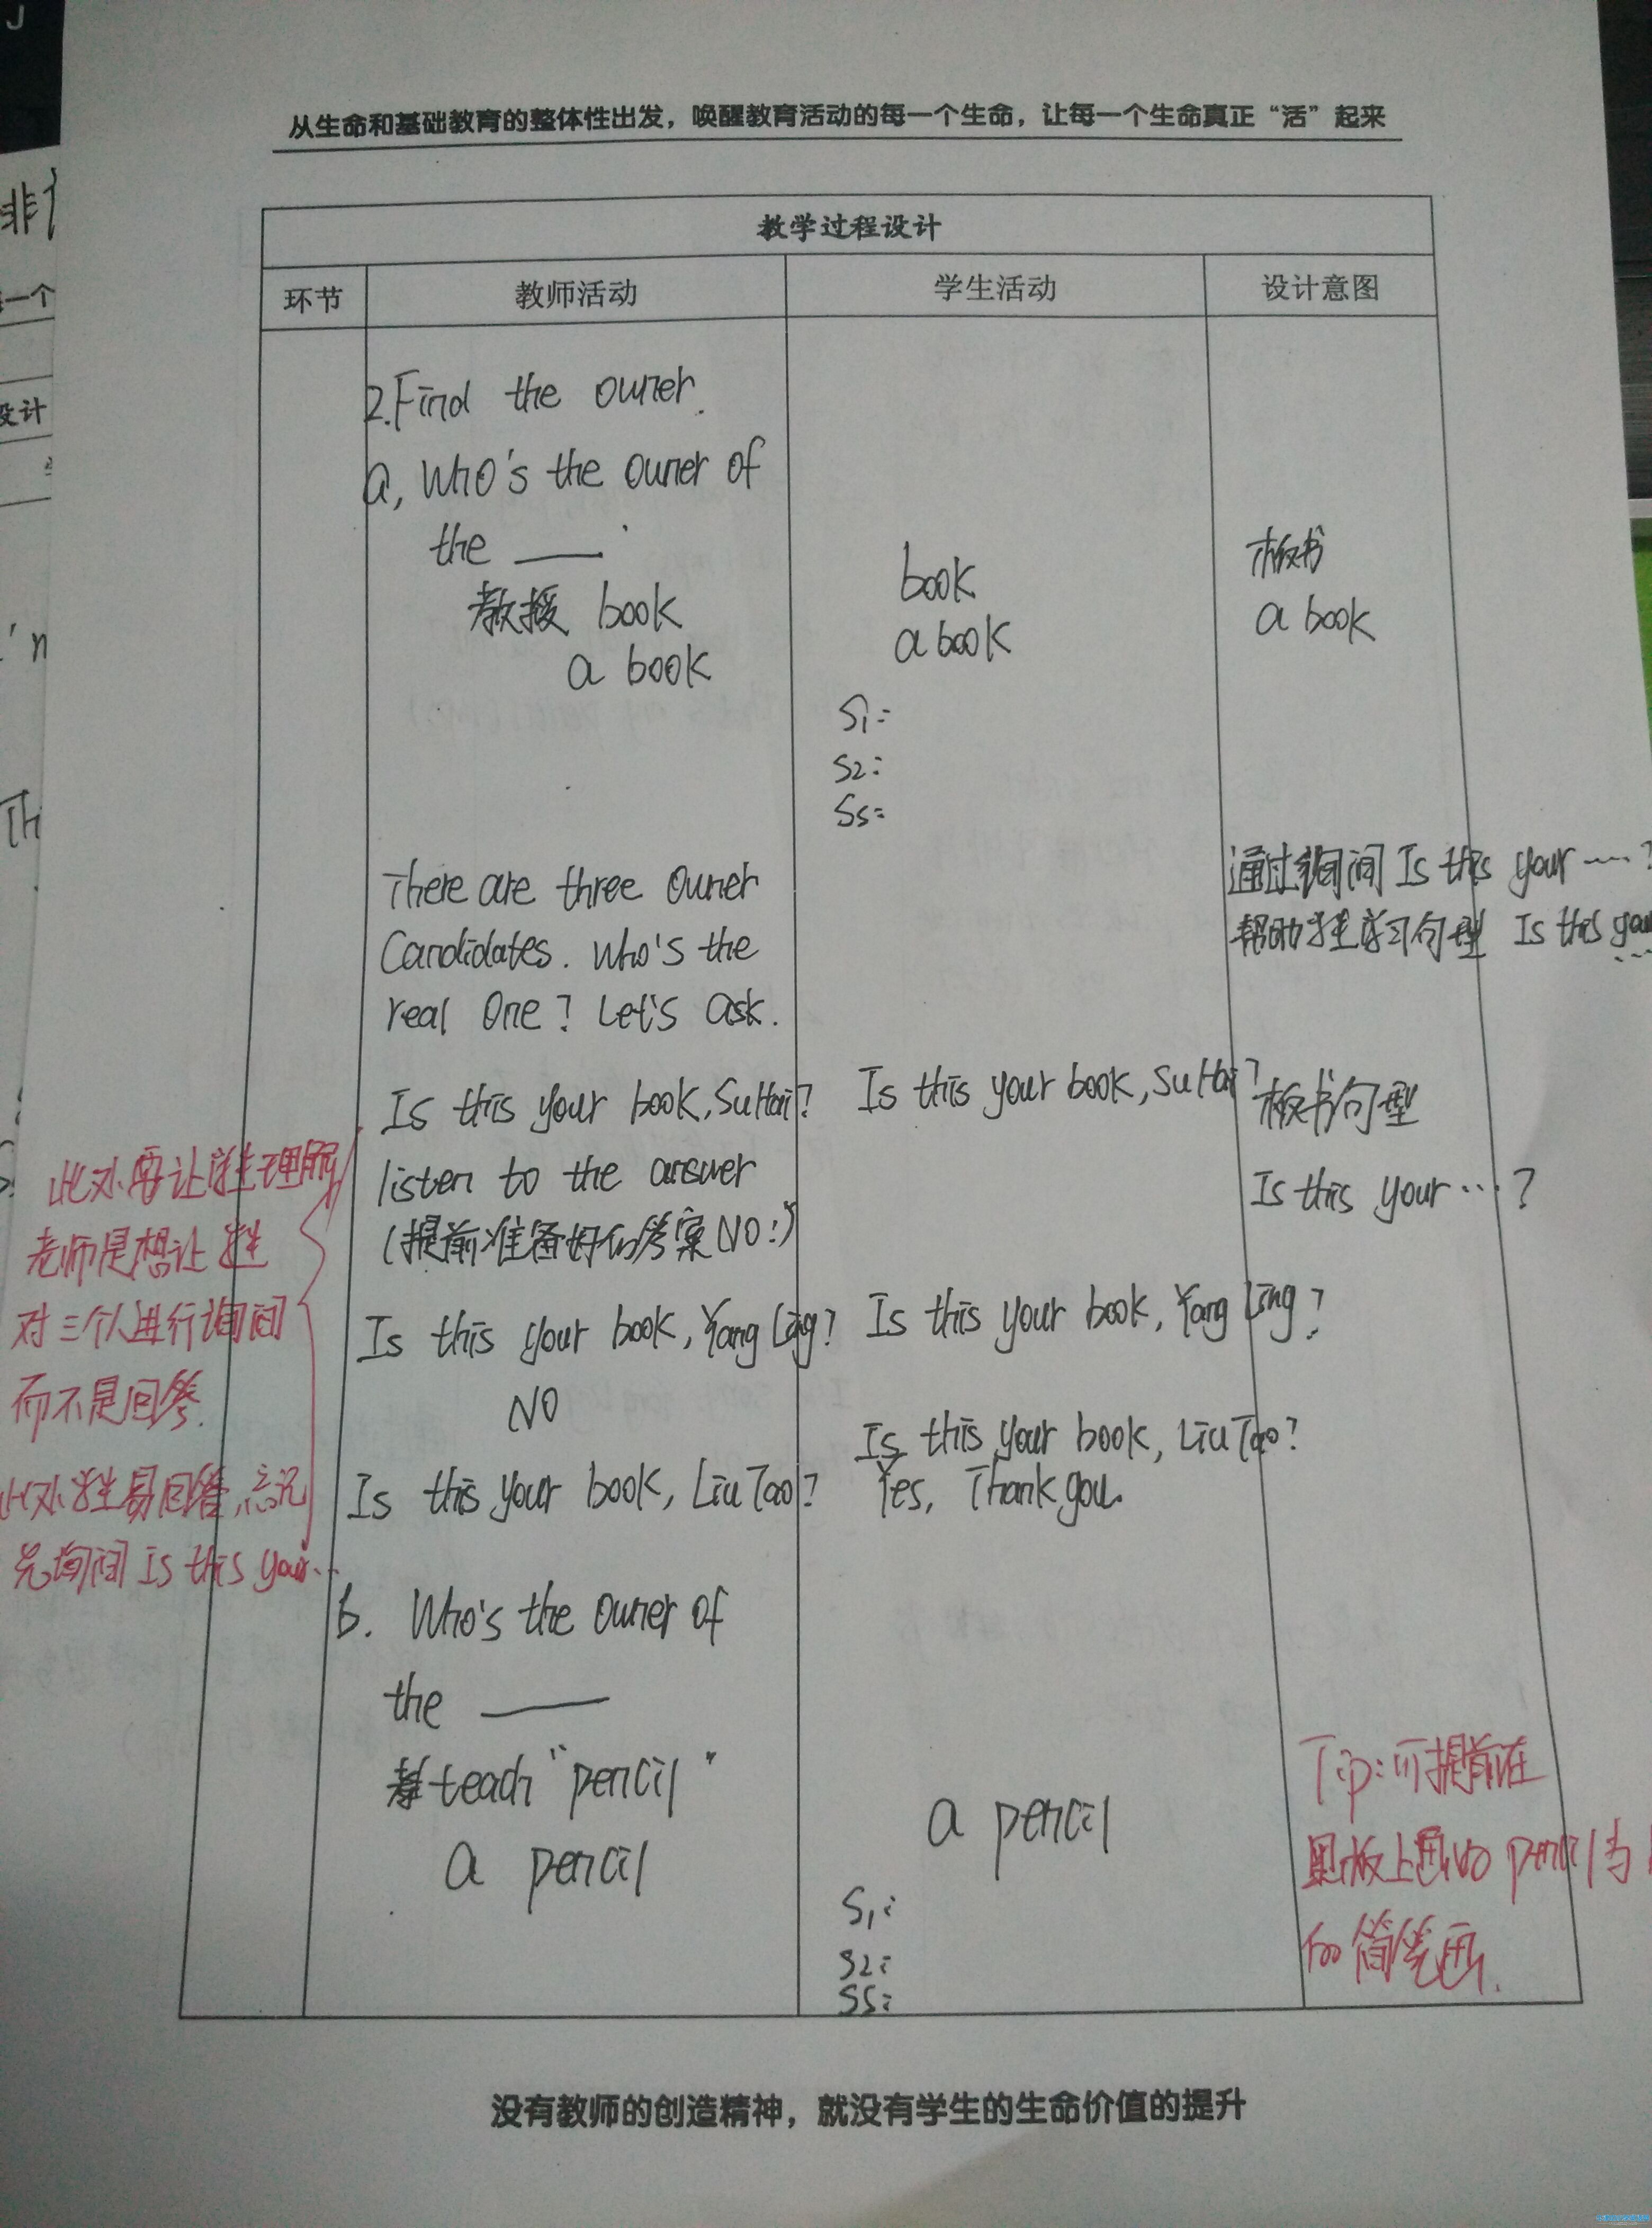 从生命和基础教育的整体性出发，唤醒教育活动的每一个生命，让每一个生命真正“活”起来
教学过程设计
环节 教师活动 学生活动 设计意图
2.Find the owner.
a, Who's the owner of
the ____.
教授 book
a book
book
a book
板书
a book
S1:
S2:
Ss:
There are three owner
Candidates. Who's the
real One? Let's ask.
通过询问 Is this your ……?
帮助学生学习句型 Is this your
……
Is this your book, Su Hai?
Is this your book, Su Hai?
板书句型
Is this your …?
listen to the answer
(提前准备好的答案 NO!)
此处要让学生理解
老师是想让学生
对三个人进行询问
而不是回答.
Is this your book, Yang Ling?
Is this your book, Yang Ling?
NO
Is this your book, Liu Tao?
Is this your book, Liu Tao?
Yes, Thank you.
此处学生易回答,忘记
先询问 Is this your…
b. Who's the owner of
the ____
teach "pencil"
a pencil
a pencil
S1:
S2:
Ss:
Tip:可提前在
黑板上画 pencil
的简笔画.
没有教师的创造精神，就没有学生的生命价值的提升